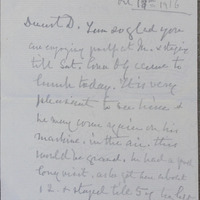 18th 1916
Dearest D. I am so glad you
are enjoying yourself at M. & staying
till Sat. Conn B came to
lunch today. It is very
pleasant to see him &
he may come again on his
machine, in the air, this
would be grand. he had a good
long visit. as he got here about
12. & stayed till 5